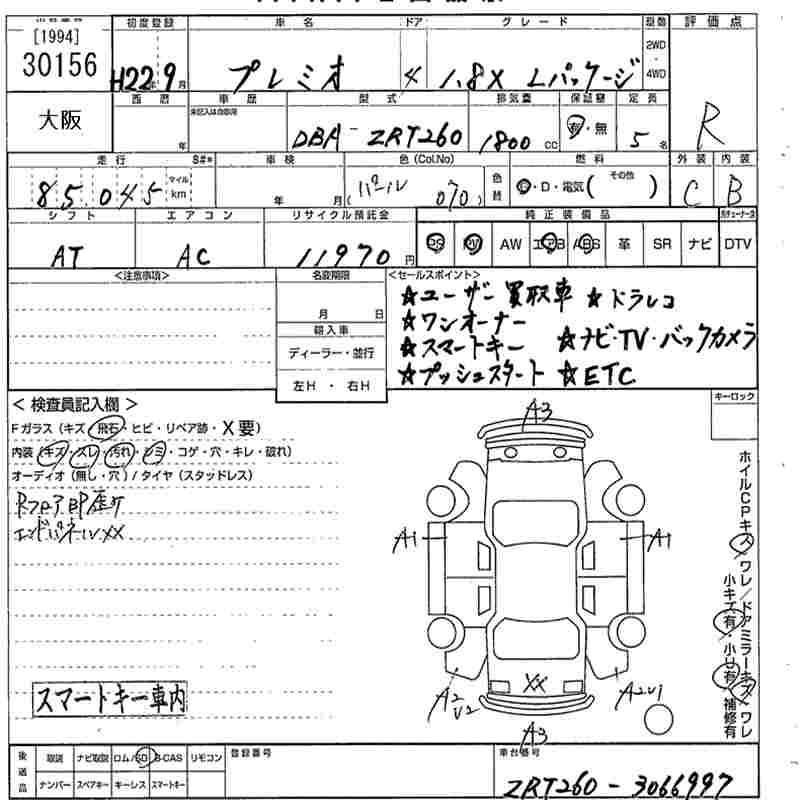 [1994]
30156
大阪
初度登録 車名 ドア グレード 駆動 評価点
H22年9月 プレミオ 4 1.8X Lパッケージ 2WD・4WD R
西暦 車歴 型式 排気量 保証書 定員
年 未記入は自家用 DBA-ZRT260 1800cc 有・無 5名
走行 S#* 車検 色(Col.No) 色替 燃料 外装 内装
85,045 マイル km 年 月 (パール 070) G・D・電気( その他 ) C B
シフト エアコン リサイクル預託金 純正装備品
AT AC 11970円 PS PW AW エアB ABS 革 SR ナビ DTV
<注意事項> 名変期限 <セールスポイント>
月 日
輸入車
ディーラー・並行
左H・右H
☆ユーザー買取車 ☆ドラレコ
☆ワンオーナー
☆スマートキー ☆ナビ・TV・バックカメラ
☆プッシュスタート ☆ETC
<検査員記入欄>
Fガラス(キズ・飛石・ヒビ・リペア跡・X要)
内装(キズ・スレ・汚れ・シミ・コゲ・穴・キレ・破れ)
オーディオ(無し・穴)/タイヤ(スタッドレス)
RフロアBP歪ケ
エンドパネルXX
キーロック
A3
A1 A1
XX
A2 V2
A2V1
A3
ホイルCPキズ・ワレ/ドアミラーキズ・ワレ
小キズ有・小凹有・補修有
スマートキー車内
後送品 取説 ナビ取説 ロム/SD B-CAS リモコン 登録番号 車台番号
ナンバー スペアキー キーレス スマートキー ZRT260-3066997